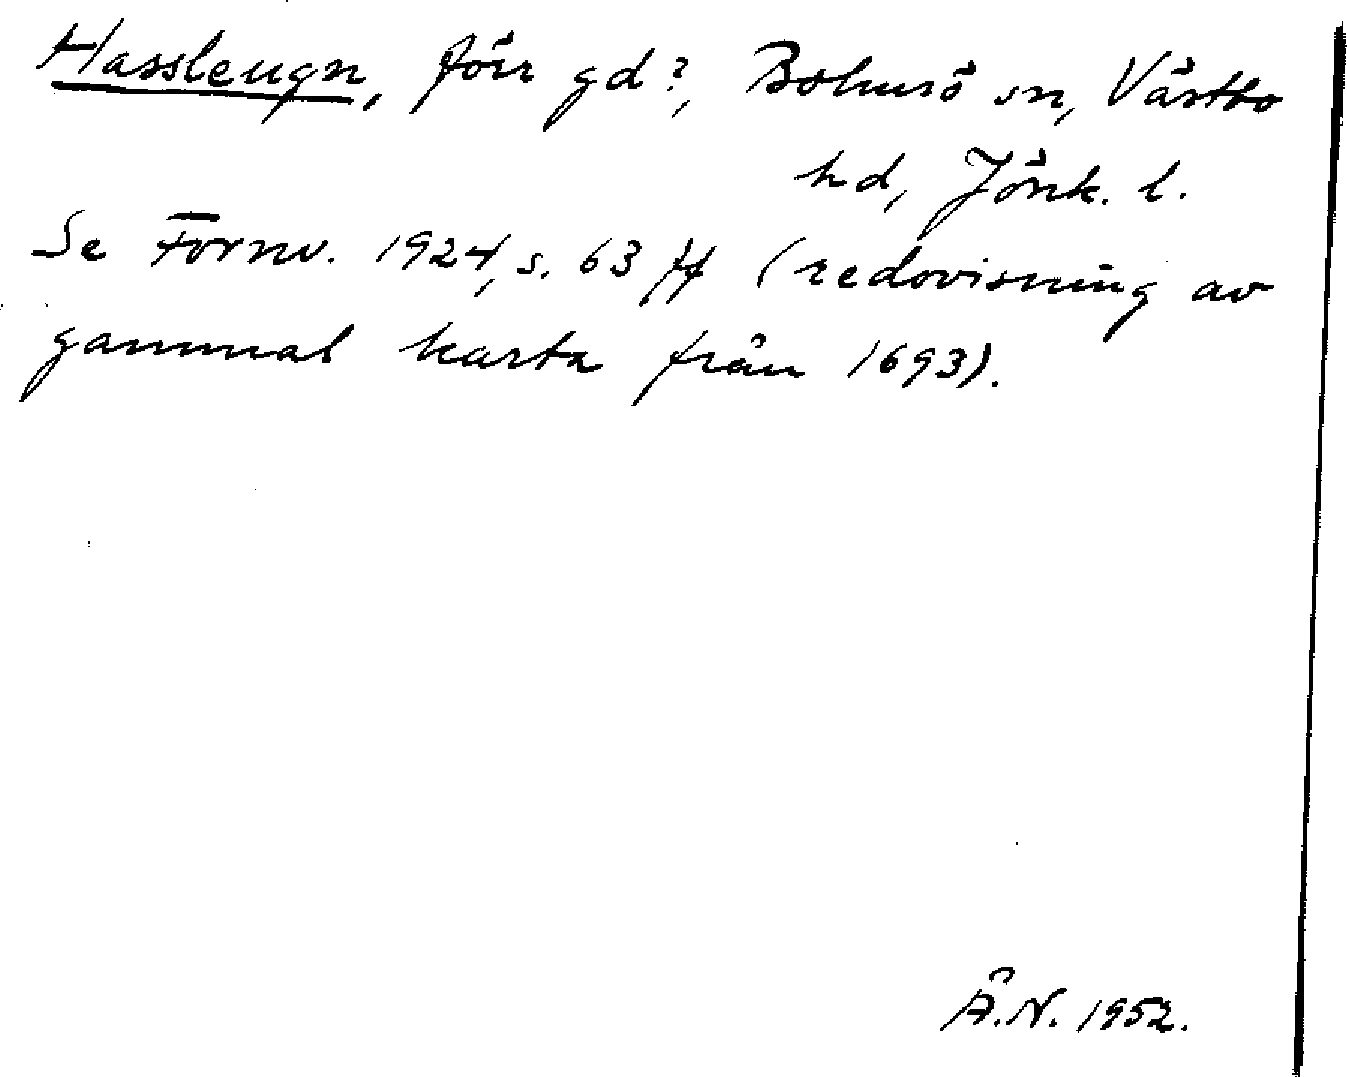 Hassleugn, förr gd?, Bolmsö sn, Västbo
hd, Jönk. l.
Se Fornv. 1924, s. 63 ff (redovisning av
gammal karta från 1693).
Å.N. 1952.